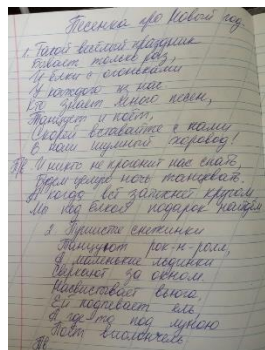 Песенка про Новый год.
1. Такой весёлый праздник
Бывает только раз,
У ёлки с огоньками
У каждого из нас
Кто знает много песен,
Танцует и поёт,
Скорей вставайте с нами
В наш шумный хоровод!
Пр. И никто не проснит нас спать,
Будем целую ночь танцевать.
А когда всё затихнет кругом,
Мы под ёлкой подарок найдём
2. Пушистые снежинки
Танцуют рок-н-ролл,
А маленькие льдинки
Сверкают за окном.
Насвистывает вьюга,
Ей подпевает ель,
А где-то под луною
Поёт виолончель
Пр.